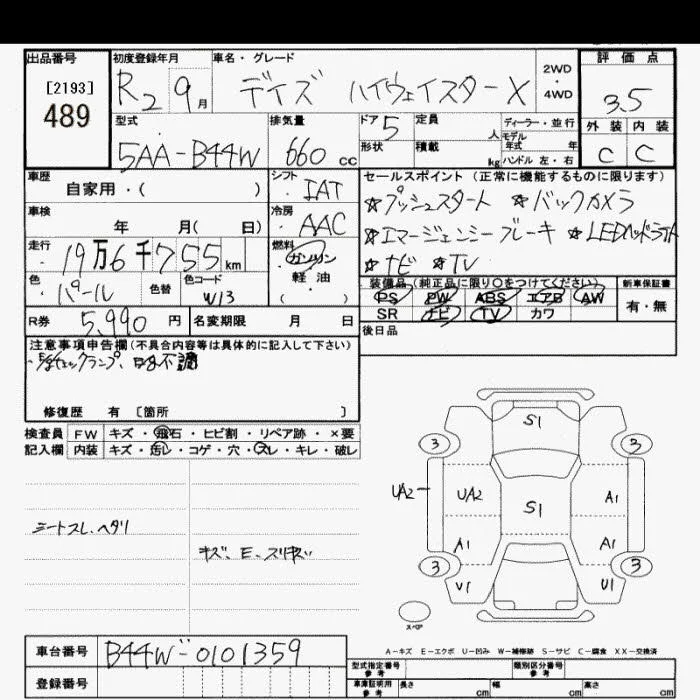 出品番号
[2193]
489
初度登録年月
R2 9月
車名・グレード
デイズ ハイウェイスターX
2WD
・
4WD
評価点
3.5
外装 内装
C C
型式
5AA-B44W
排気量
660 cc
ドア 5
形状
定員
人
積載
kg
ディーラー・並行
モデル
年式 年
ハンドル 左・右
車歴
自家用・( )
シフト
・IAT
車検
年 月( 日)
冷房
・AAC
走行
・19万6千755km
燃料
ガソリン
軽油
( )
色
・パール
色替
色コード
W13
R券 5,990円
名変期限 月 日
セールスポイント (正常に機能するものに限ります)
☆プッシュスタート ☆バックカメラ
☆エマージェンシーブレーキ ☆LEDヘッドライト
☆ナビ ☆TV
装備品(純正品に限り○をつけてください)
PS PW ABS エアB AW
SR ナビ TV カワ
新車保証書
有・無
後日品
注意事項申告欄(不具合内容等は具体的に記入して下さい)
修復歴 有 [箇所 ]
検査員
記入欄
FW キズ・飛石・ヒビ割・リペア跡・×要
内装 キズ・汚レ・コゲ・穴・スレ・キレ・破レ
シートスレ、ヘタリ
キズ、E、スリキズ
S1
3 3
UA2 UA2 A1
S1
A1 A1
3 3
U1 U1
スペア
A-キズ E-エクボ U-凹み W-補修跡 S-サビ C-腐食 XX-交換済
車台番号 B44W-0101359
登録番号
型式指定番号
参考
類別区分番号
参考
車庫証明用
参考
長さ cm 幅 cm 高さ cm